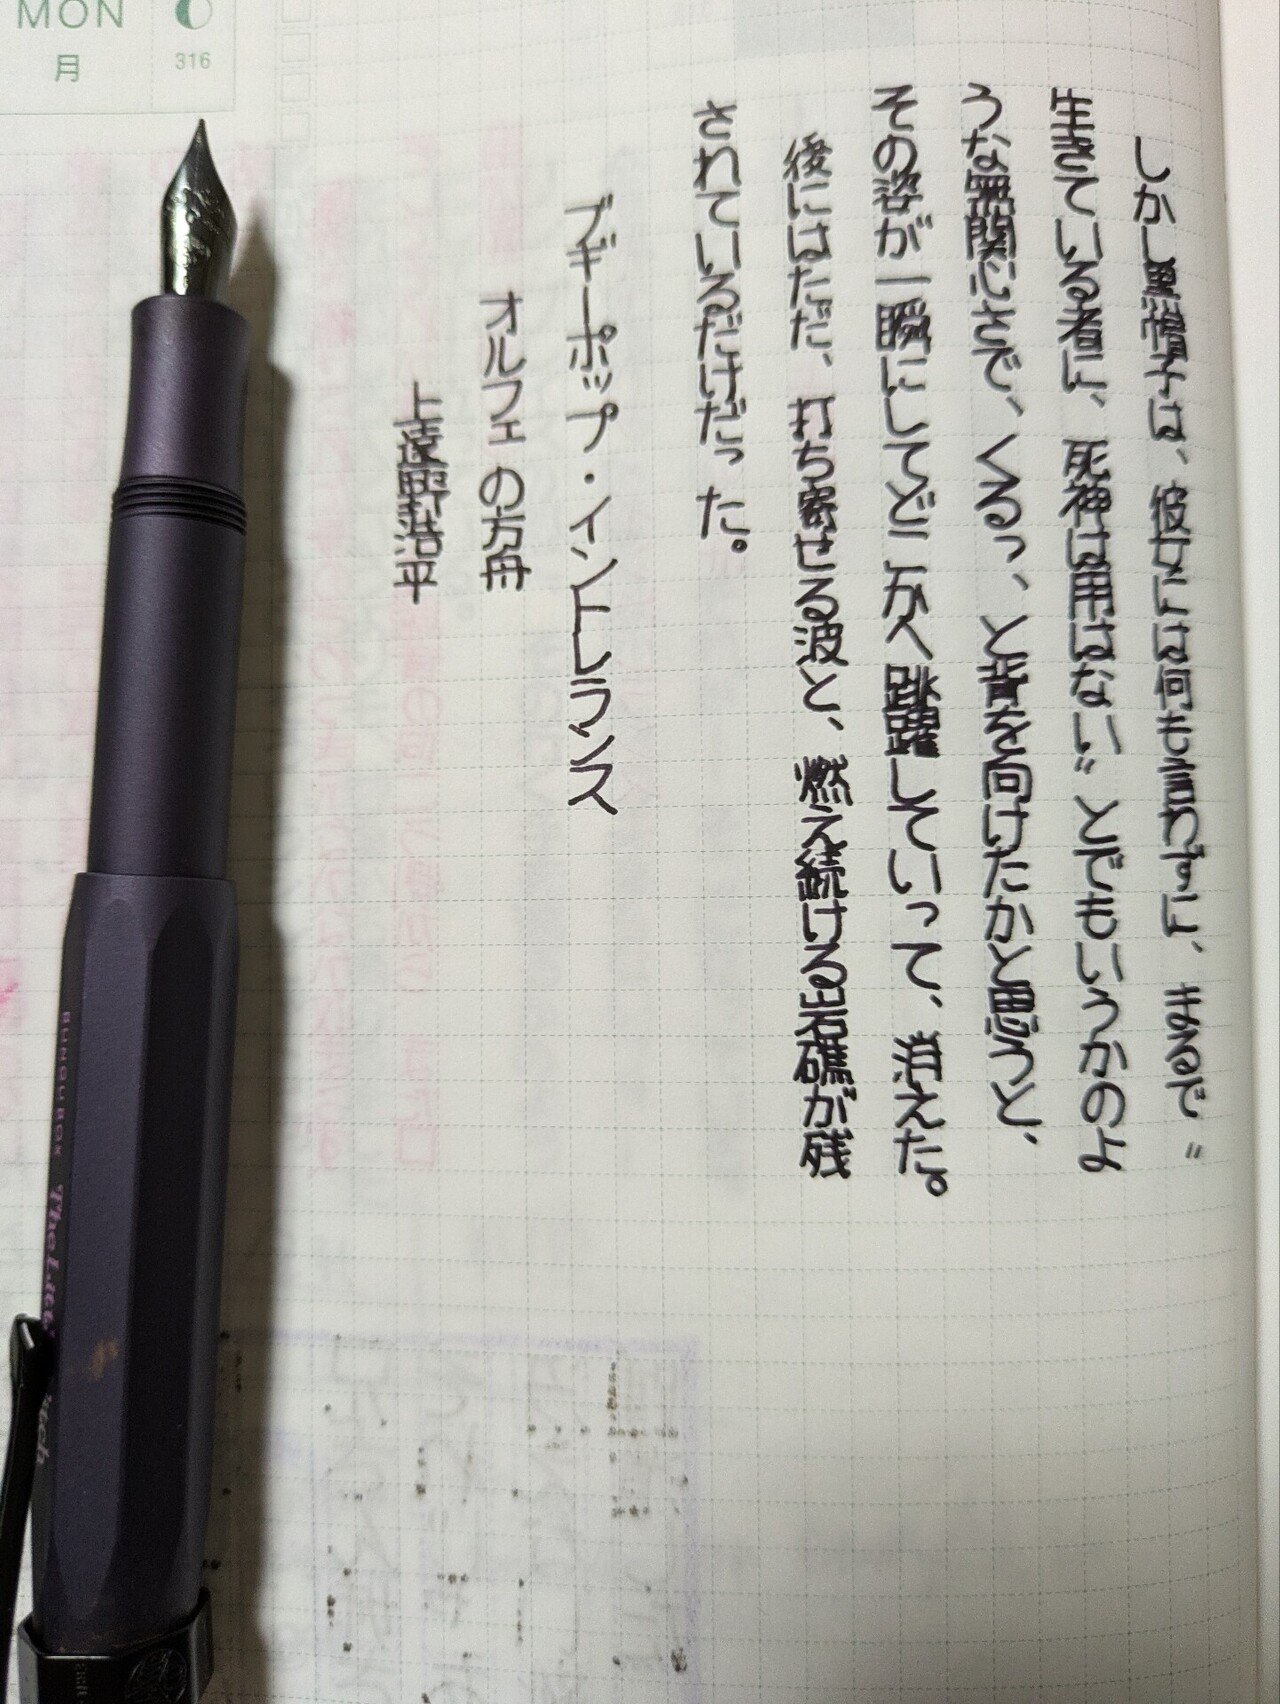 MON
月
316
しかし黒帽子は、彼女には何も言わずに、まるで〝
生きている者に、死神は用はない〟とでもいうかのよ
うな無関心さで、くるっ、と背を向けたかと思うと、
その姿が一瞬にしてどこかへ跳躍していって、消えた。
後にはただ、打ち寄せる波と、燃え続ける岩礁が残
されているだけだった。
ブギーポップ・イントレランス
オルフェの方舟
上遠野浩平
BUNGUBOX